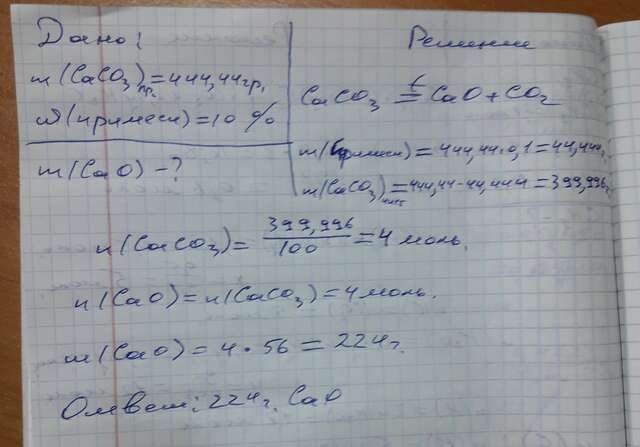 Дано:
m(CaCO₃)пр. = 444,44гр.
ω(примеси) = 10 %
m(CaO) - ?
Решение
CaCO₃ =t CaO + CO₂
m(примеси) = 444,44·0,1 = 44,444г.
m(CaCO₃)чист = 444,44 - 44,444 = 399,996г.
n(CaCO₃) = 399,996/100 = 4 моль.
n(CaO) = n(CaCO₃) = 4 моль.
m(CaO) = 4 · 56 = 224г.
Ответ: 224г. CaO